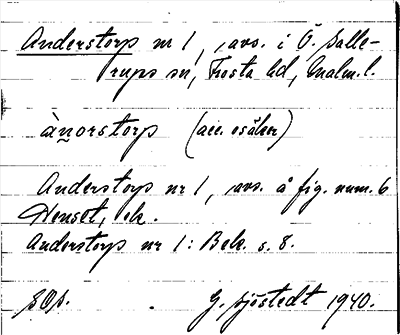 Anderstorp nr 1, avs. i Ö. Salle-
rups sn, Frosta hd, Malm. l.
ànorstorp (acc. osäker)
Anderstorp nr 1, avs. å fig. num. 6
Henset, ek.
Anderstorp nr 1: Bek. s. 8.
G. Sjöstedt 1940.